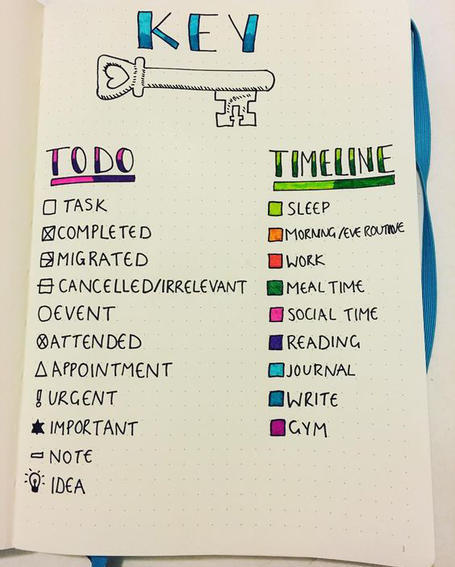 KEY
TODO
TASK
COMPLETED
MIGRATED
CANCELLED/IRRELEVANT
EVENT
ATTENDED
APPOINTMENT
! URGENT
IMPORTANT
NOTE
IDEA
TIMELINE
SLEEP
MORNING/EVE ROUTINE
WORK
MEAL TIME
SOCIAL TIME
READING
JOURNAL
WRITE
GYM
1